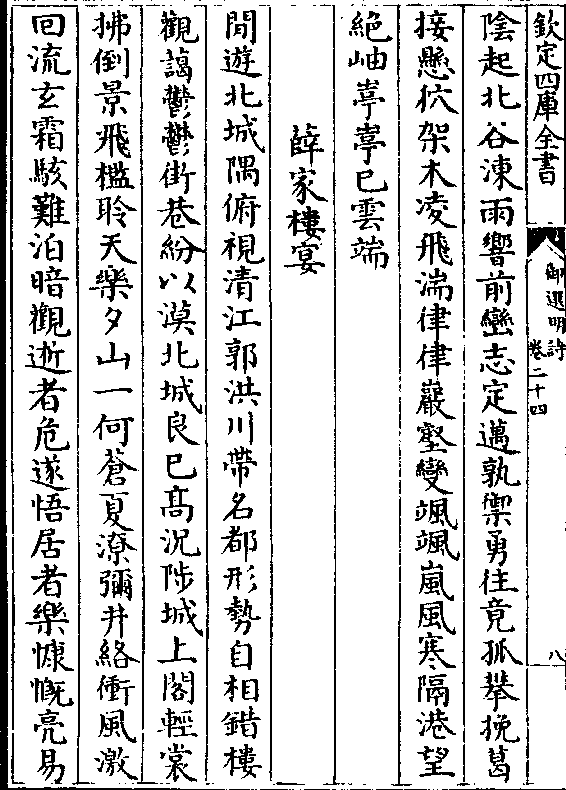 欽定四庫全書
御選明詩
卷二十四
八
陰起北谷涷雨響前巒志定邁孰禦勇往竟孤攀挽葛
接懸杙架木凌飛湍侓侓巖壑變颯颯嵐風寒隔港望
絶岫亭亭已雲端
薛家樓宴
閒遊北城隅俯視清江郭洪川帶名都形勢自相錯樓
觀藹鬱鬱街巷紛以漠北城良已髙況陟城上閣輕裳
拂倒景飛檻聆天樂夕山一何蒼夏潦彌井絡衝風激
回流玄霜駭難泊暗觀逝者危遂悟居者樂慷慨亮易